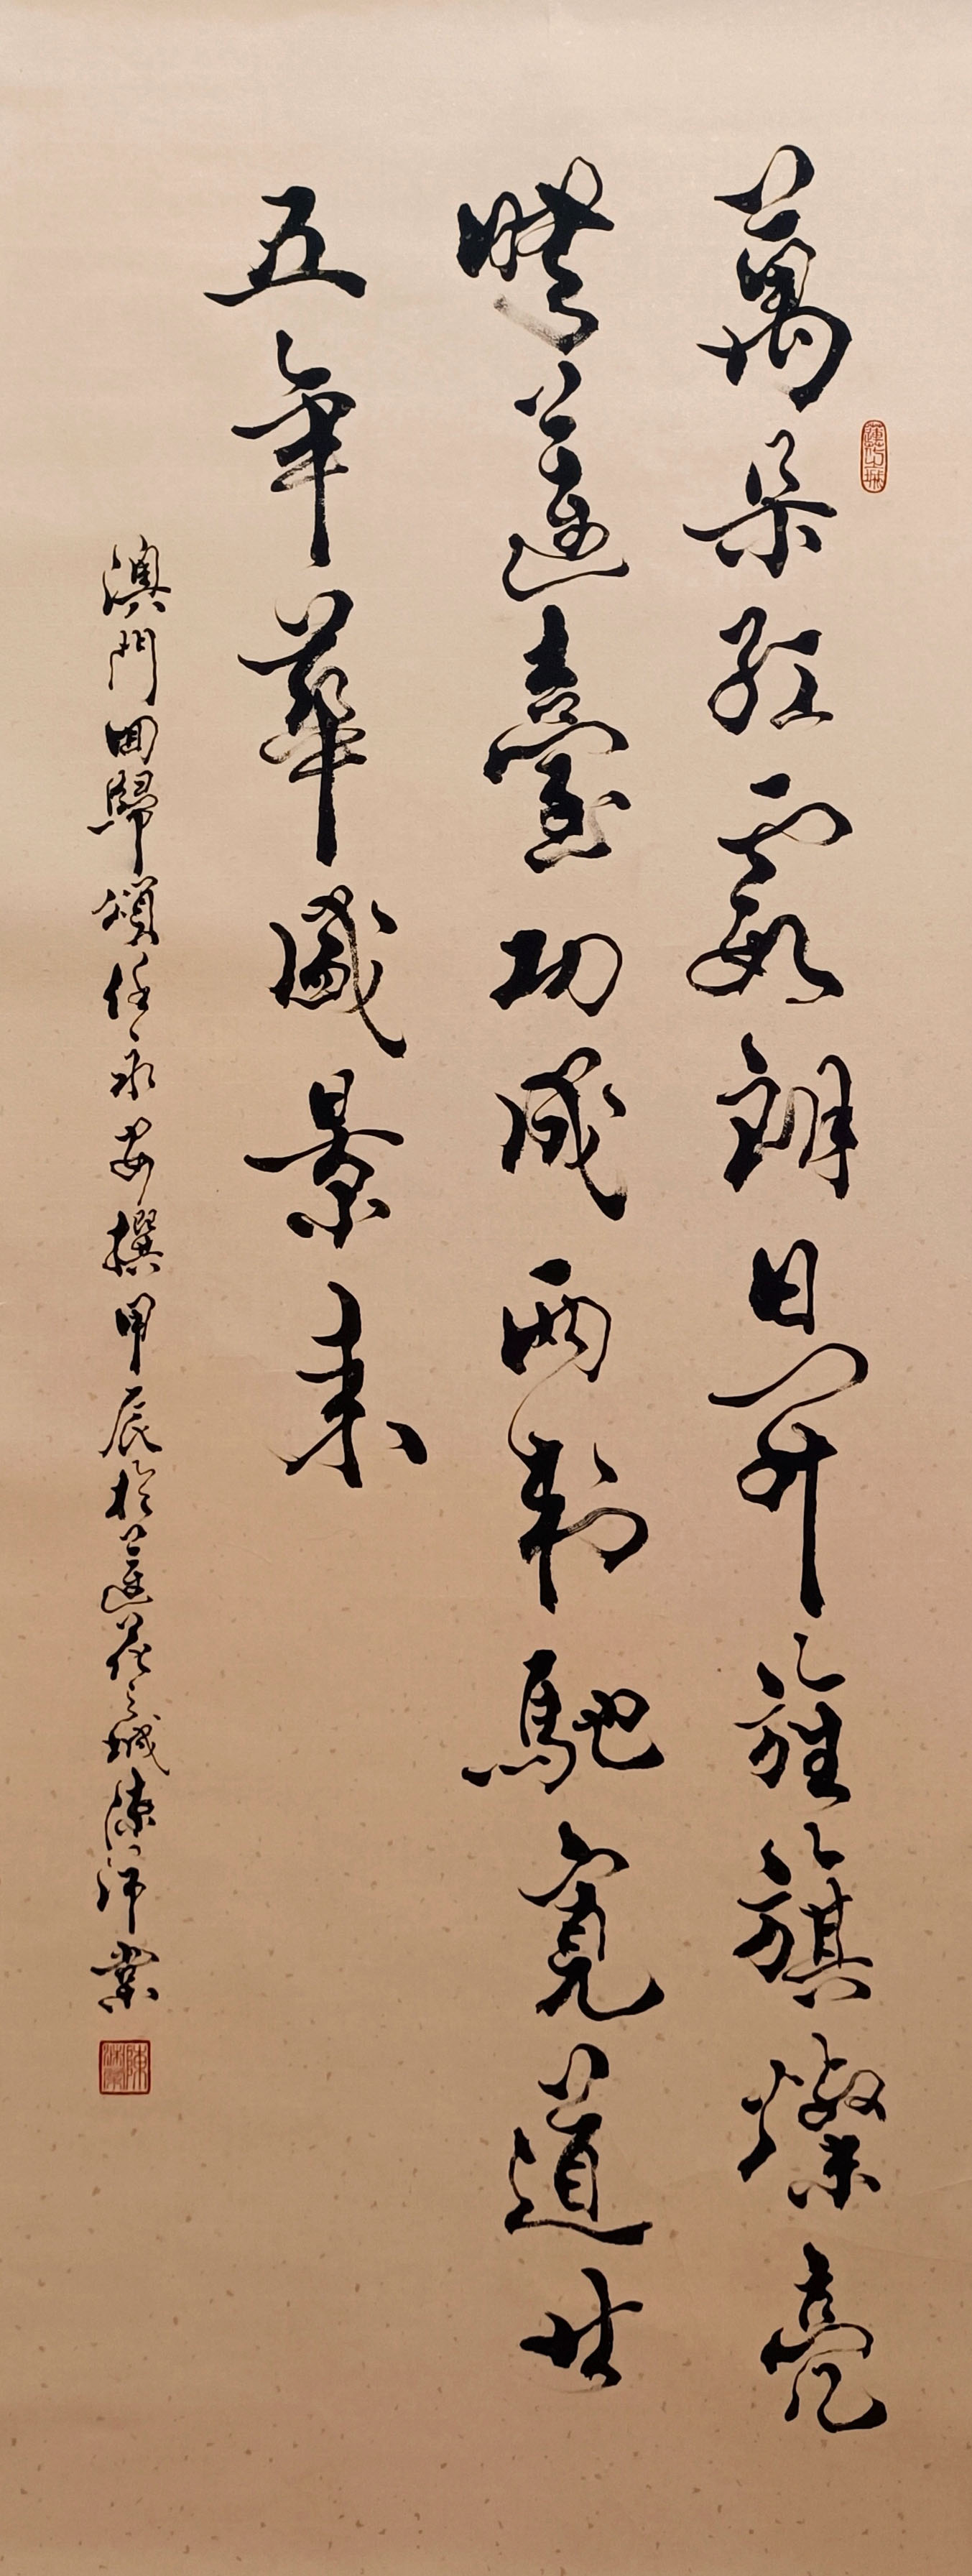 蓮花之城
萬朵紅霞朗日開旌旗燦亮
蓮臺功成兩制馳寬道廿
五年華盛景來
澳門回歸頌任永安撰甲辰於蓮花之城陳沛棠